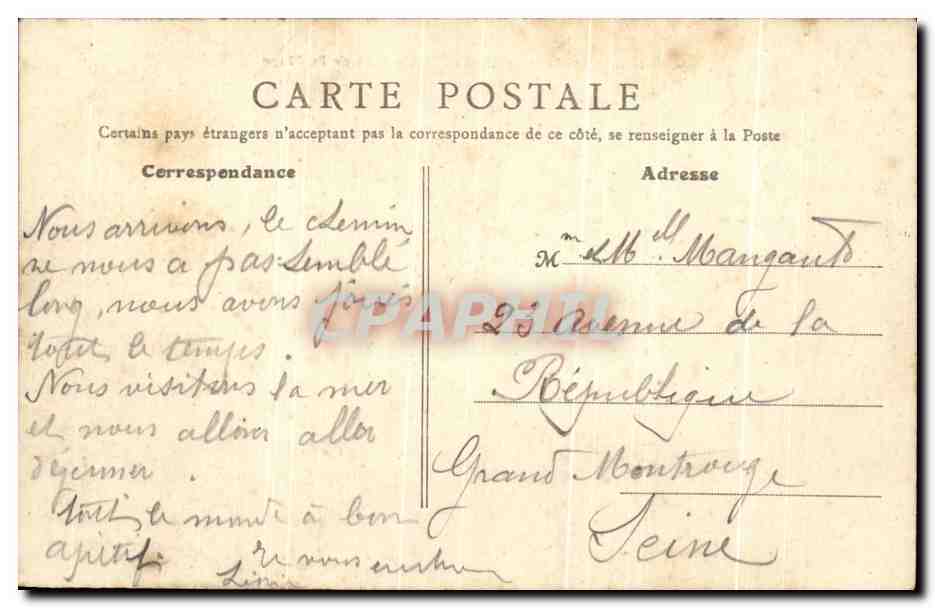 CARTE POSTALE
Certains pays étrangers n'acceptant pas la correspondance de ce côté, se renseigner à la Poste
Correspondance
Nous arrivons, le chemin
ne nous a pas semblé
long, nous avons joués
tout le temps.
Nous visitons la mer
et nous allons aller
déjeuner.
tout le monde à bon
apétit.
Et vous
Adresse
Mm et Mell Mangault
23 Avenue de la
République
Grand Montrouge
Seine
CPAPHIL